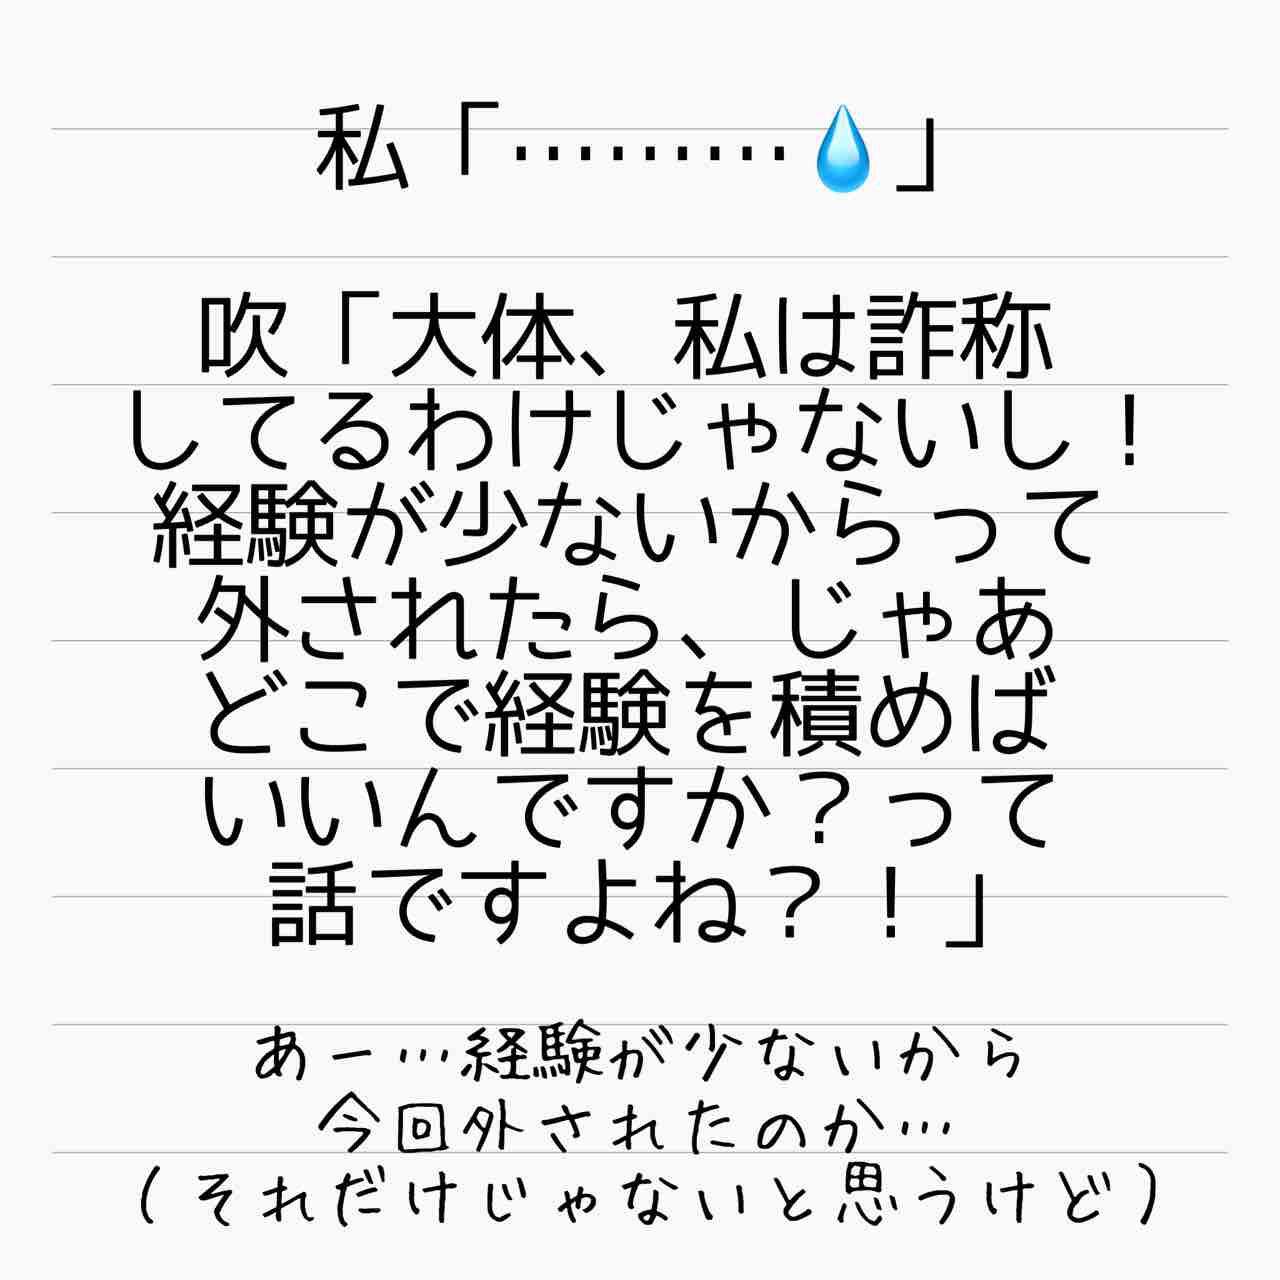 私「………💧」
吹「大体、私は詐称
してるわけじゃないし！
経験が少ないからって
外されたら、じゃあ
どこで経験を積めば
いいんですか？って
話ですよね？！」
あー…経験が少ないから
今回外されたのか…
（それだけじゃないと思うけど）